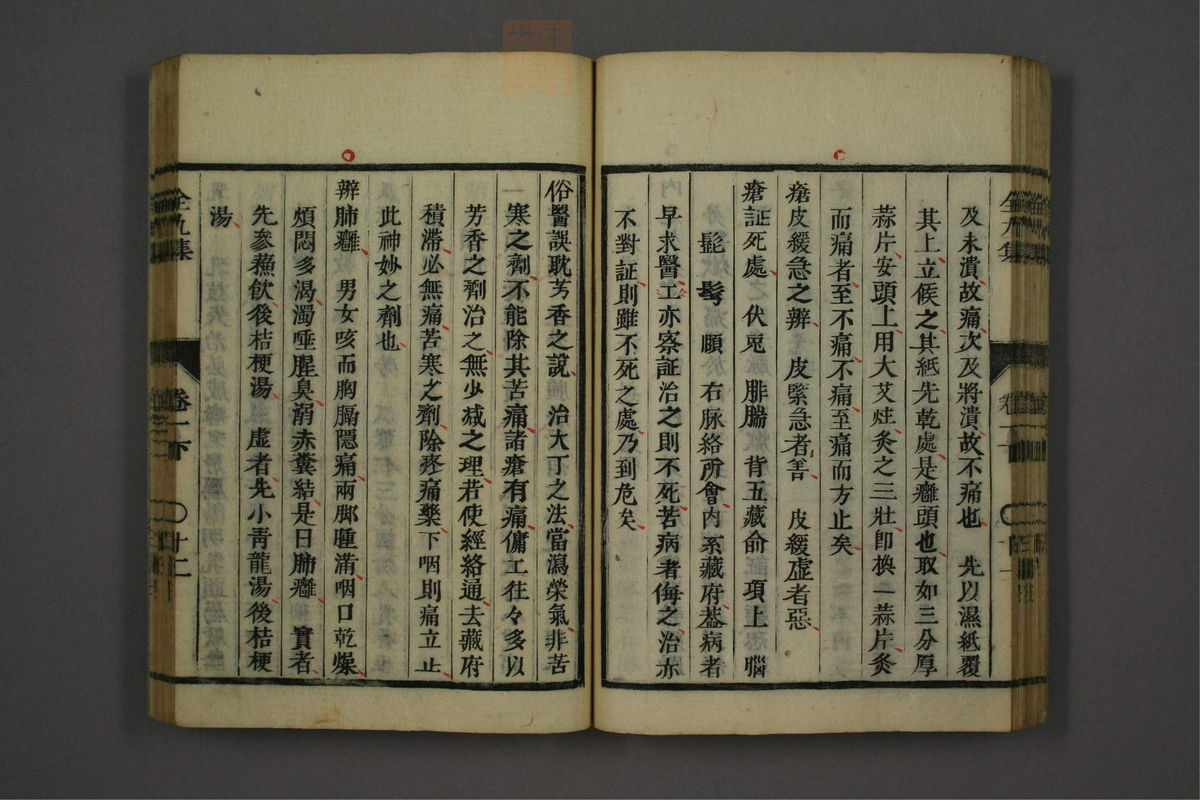 及未潰故痛次及將潰故不痛也 先以濕紙覆
其上立候之其紙先乾處是癰頭也取如三分厚
蒜片安頭上用大艾炷灸之三壯卽換一蒜片灸
而痛者至不痛不痛至痛而方止矣
瘡皮緩急之辨 皮緊急者善 皮緩虛者惡
瘡証死處 伏兎 腓腨 背五藏俞 項上 腦
髭 髩 頤 右脉絡所會內系藏府葢病者
早求醫工亦察証治之則不死若病者侮之治亦
不對証則雖不死之處乃到危矣
俗醫誤耽芳香之說 治大丁之法當瀉榮氣非苦
寒之劑不能除其苦痛諸瘡有痛傭工往々多以
芳香之劑治之無少减之理若使經絡通去藏府
積滯必無痛苦寒之劑除疼痛藥下咽則痛立止
此神妙之劑也
辨肺癰 男女咳而胸膈隱痛兩脚腫滿咽口乾燥
煩悶多渴濁唾腥臭溺赤糞結是曰肺癰 實者
先參蘓飲後桔梗湯 虛者先小靑龍湯後桔梗
湯
卷一下 〇 廿二